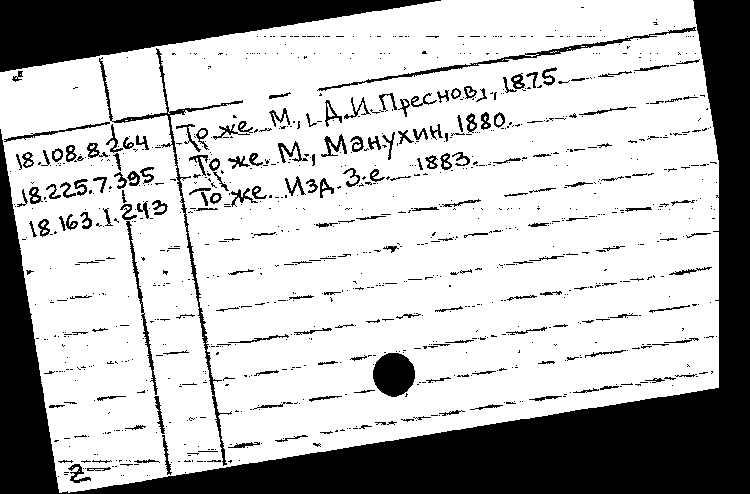 18.108.8.264 То же. М., Д.И. Преснов, 1875.
18.225.7.395 То же. М., Манухин, 1880.
18.163.1.243 То же. Изд. 3-е. 1883.
2